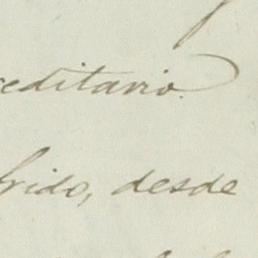 editario.
rido, desde